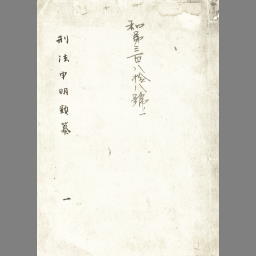 和第三百八拾八號ノ一
刑法申明類纂
一